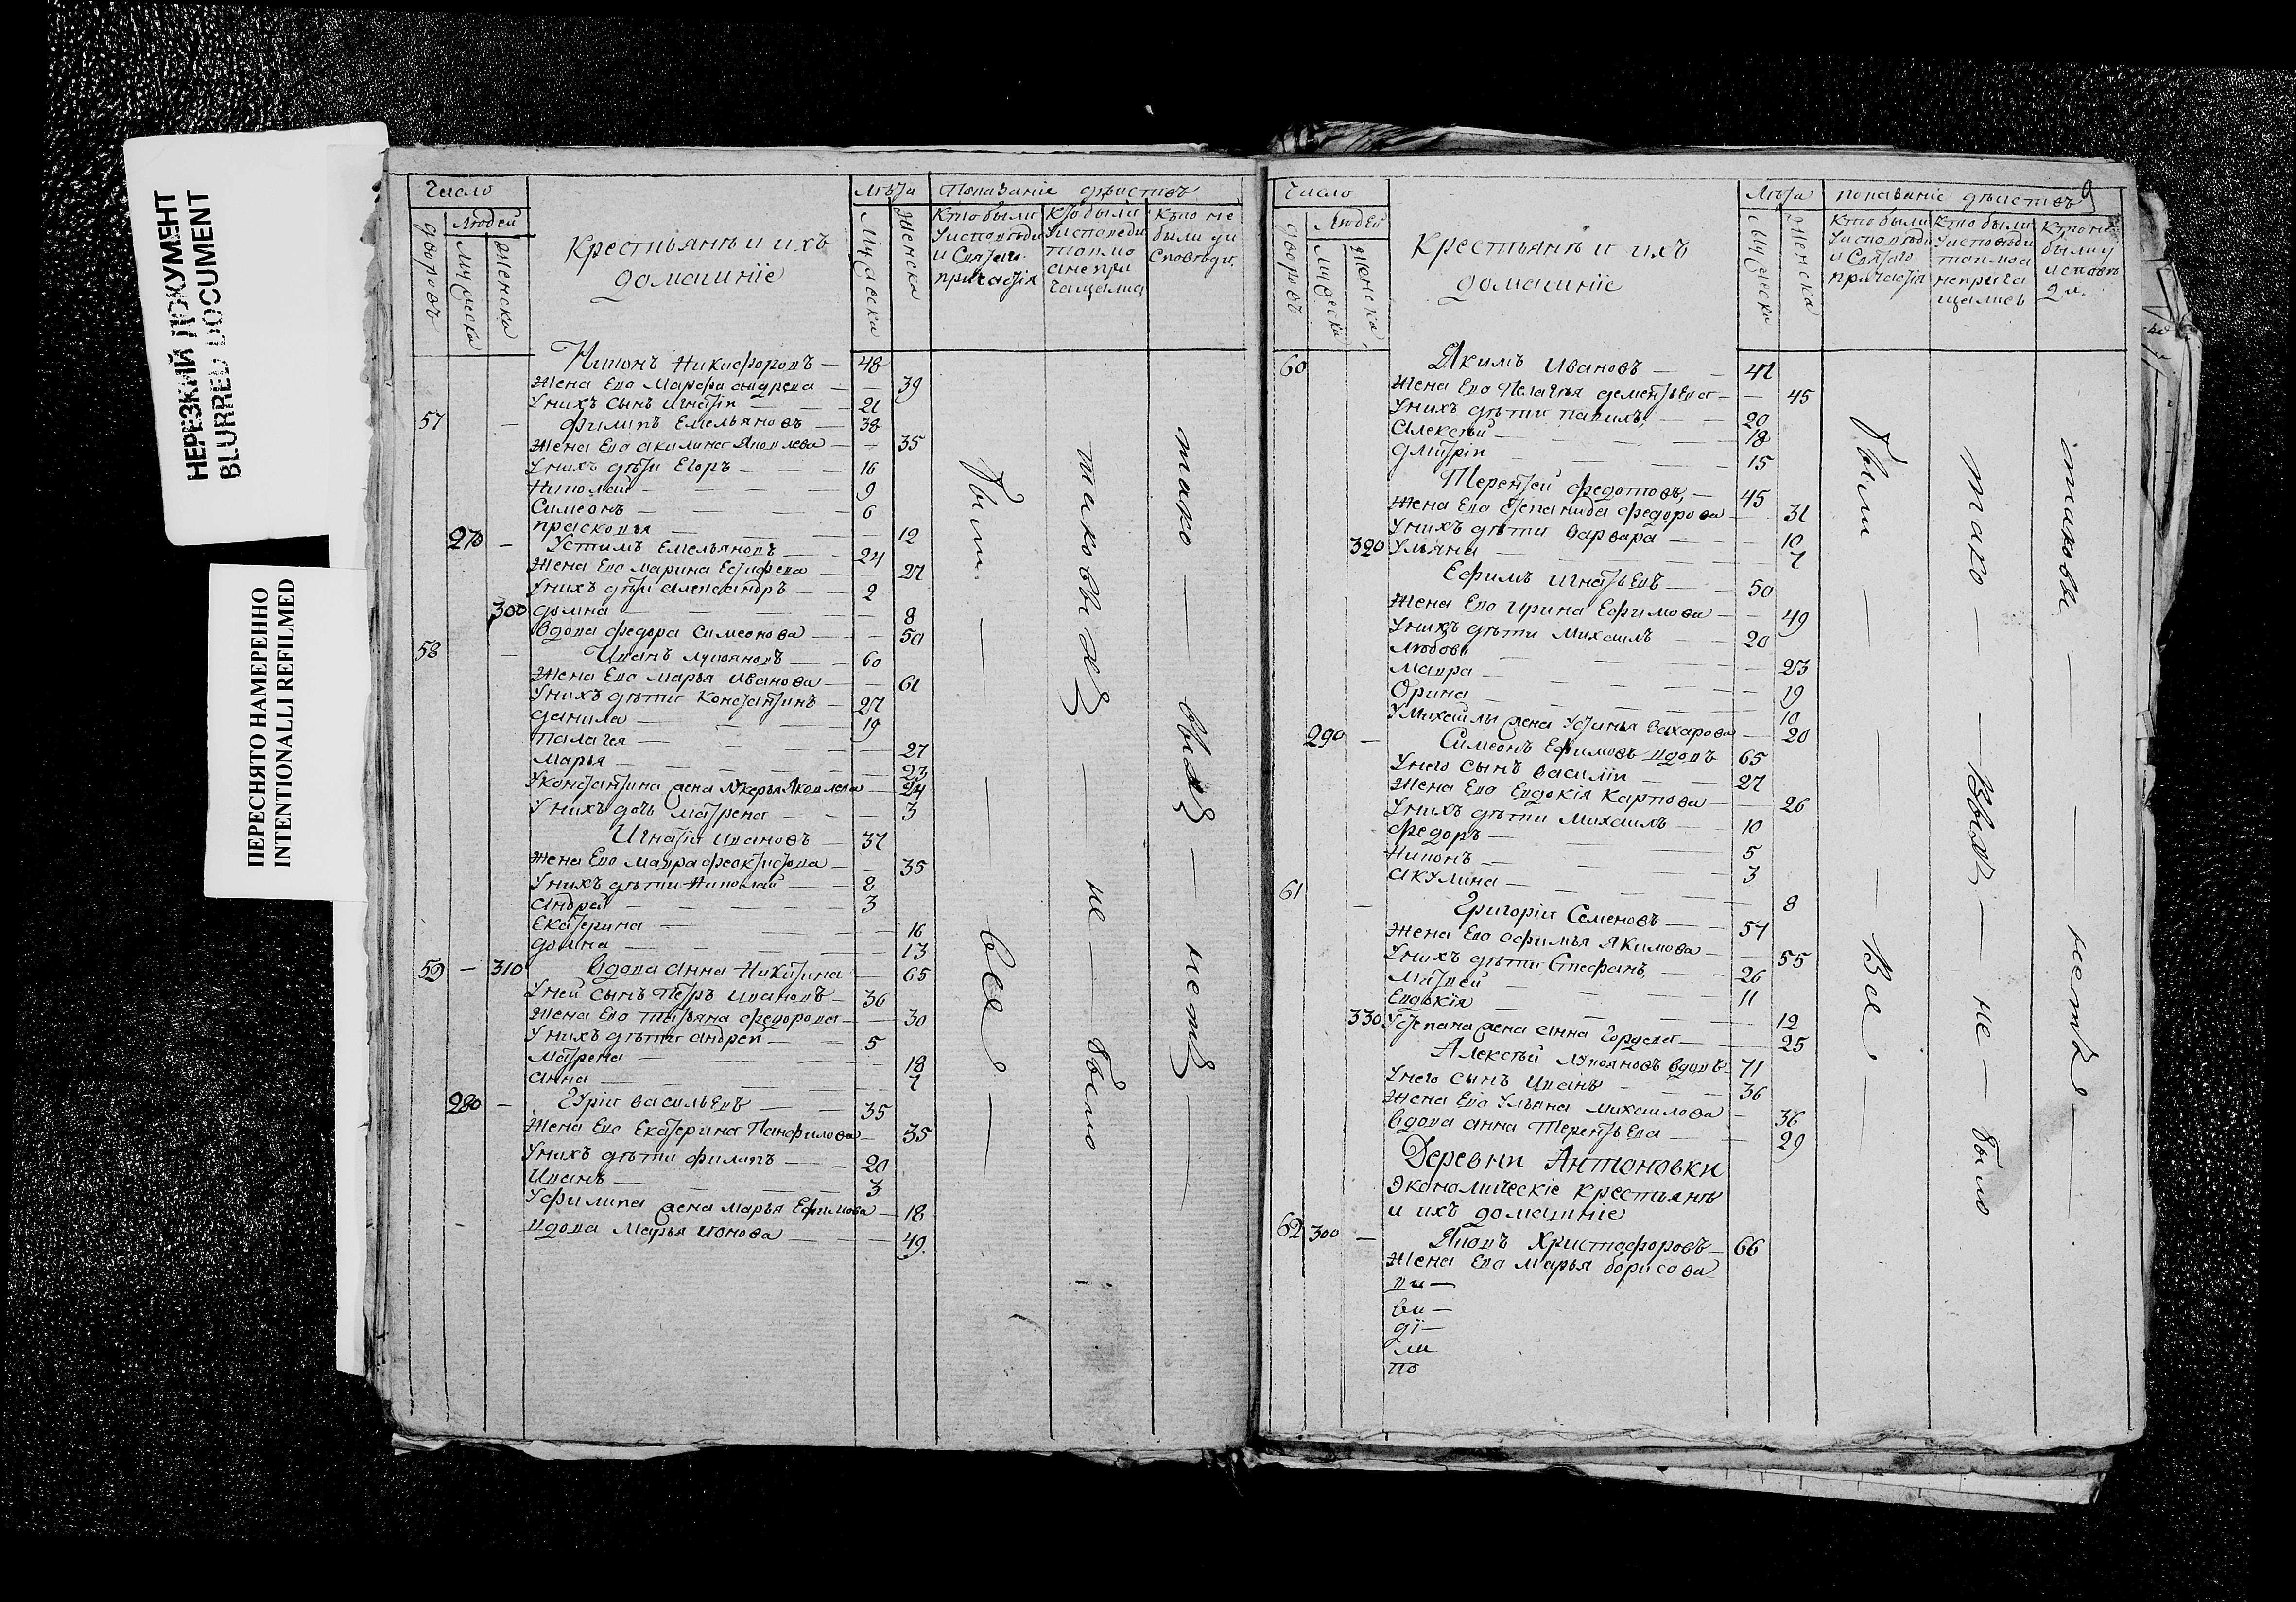 НЕРЕЗКИЙ ДОКУМЕНТ
BLURRED DOCUMENT
ПЕРЕСНЯТО НАМЕРЕННО
INTENTIONALLI REFILMED
Число
Людей
дворовъ
мужеска
женска
Крестьянѣ и ихъ
домашніе
Лѣта
Мужеска
Женска
Показаніе дѣйствъ
Кто были
у исповѣди
и Святаго
причастія
Кто были
у исповеди
токмо
а не при
чащались
Кто не
были у и
сповѣди
Никонъ Никифоровъ — 48
жена Его Марфа андреева — 39
у нихъ сынъ игнатій — 21
57 — филипъ Емельяновъ — 38
жена Его акилина Яковлева — 35
у нихъ дѣти Егоръ — 16
Николай — 9
Симеонъ — 6
прасковья — 12
270 — Устимъ Емельяновъ — 24
жена Его марина Естифева — 27
у нихъ дѣти александръ — 2
300 домна — 8
вдова федора симеонова — 50
58 — Иванъ лукояновъ — 60
жена Его марья иванова — 61
у нихъ дѣти константинъ — 27
данила — 19
палагея — 27
марья — 23
у константина жена лукерья Яковлева — 24
у нихъ дочь матрена — 3
Игнатій ивановъ — 37
жена Его мавра феоктистова — 35
у нихъ дѣти Николай — 8
андрей — 3
Екатерина — 16
домна — 13
59 — 310 вдова анна Никитина — 65
у ней сынъ петръ ивановъ — 36
жена Его татьяна федорова — 30
у нихъ дѣти андрей — 5
матрена — 18
анна — 7
280 — Гурій васильевъ — 35
жена Его Екатерина Панфилова — 35
у нихъ дѣти филипъ — 20
иванъ — 3
у филипа жена марья Ефимова — 18
вдова марья ионова — 49
были — — все —
таковыхъ — не — было
тако — выхъ — нетъ —
9
Число
Людей
дворовъ
мужеска
женска
Крестьянѣ и ихъ
домашніе
Лѣта
Мужеска
Женска
показаніе дѣйствъ
Кто были
у исповѣди
и Святаго
причастія
Кто были
у исповѣди
токмо а
не прича
щались
Кто не
были у
исповѣ
ди.
60 Якимъ ивановъ — 47
жена Его Пелагѣя дементьева — 45
у нихъ дѣти — 20
алексѣй — 18
дмитрій — 15
Терентей федотовъ — 45
жена Его степанида федорова — 31
у нихъ дѣти варвара — 10
320 ульяна — 7
Ефимъ игнатьевъ — 50
жена Его ирина Ефимова — 49
у нихъ дѣти михаилъ — 20
любовь — 23
мавра — 19
Орина — 10
у Михаилы жена устинья захарова — 20
290 — Симеонъ Ефимовъ вдовъ 65
у него сынъ василій — 27
жена Его Евдокія карпова — 26
у нихъ дѣти михаилъ — 10
федоръ — 5
никонъ — 3
акулина — 8
61 — Григорій Семеновъ — 54
жена Его афимья Якимова — 55
у нихъ дѣти Стефанъ — 26
матвей — 11
Евдокія — 12
330 у степана жена анна Гордева — 25
Алексѣй лукояновъ вдовъ — 71
у него сынъ иванъ — 36
жена Его ульяна михаилова — 36
вдова анна терентьева — 29
Деревни Антоновки
экономическіе крестьянѣ
и ихъ домашніе
62 300 — Яковъ Христофоровъ — 66
жена Его марья борисова
ви —
ди —
ли
по
были — — Все —
тако — — выхъ — не — было
таковы — — нетъ —